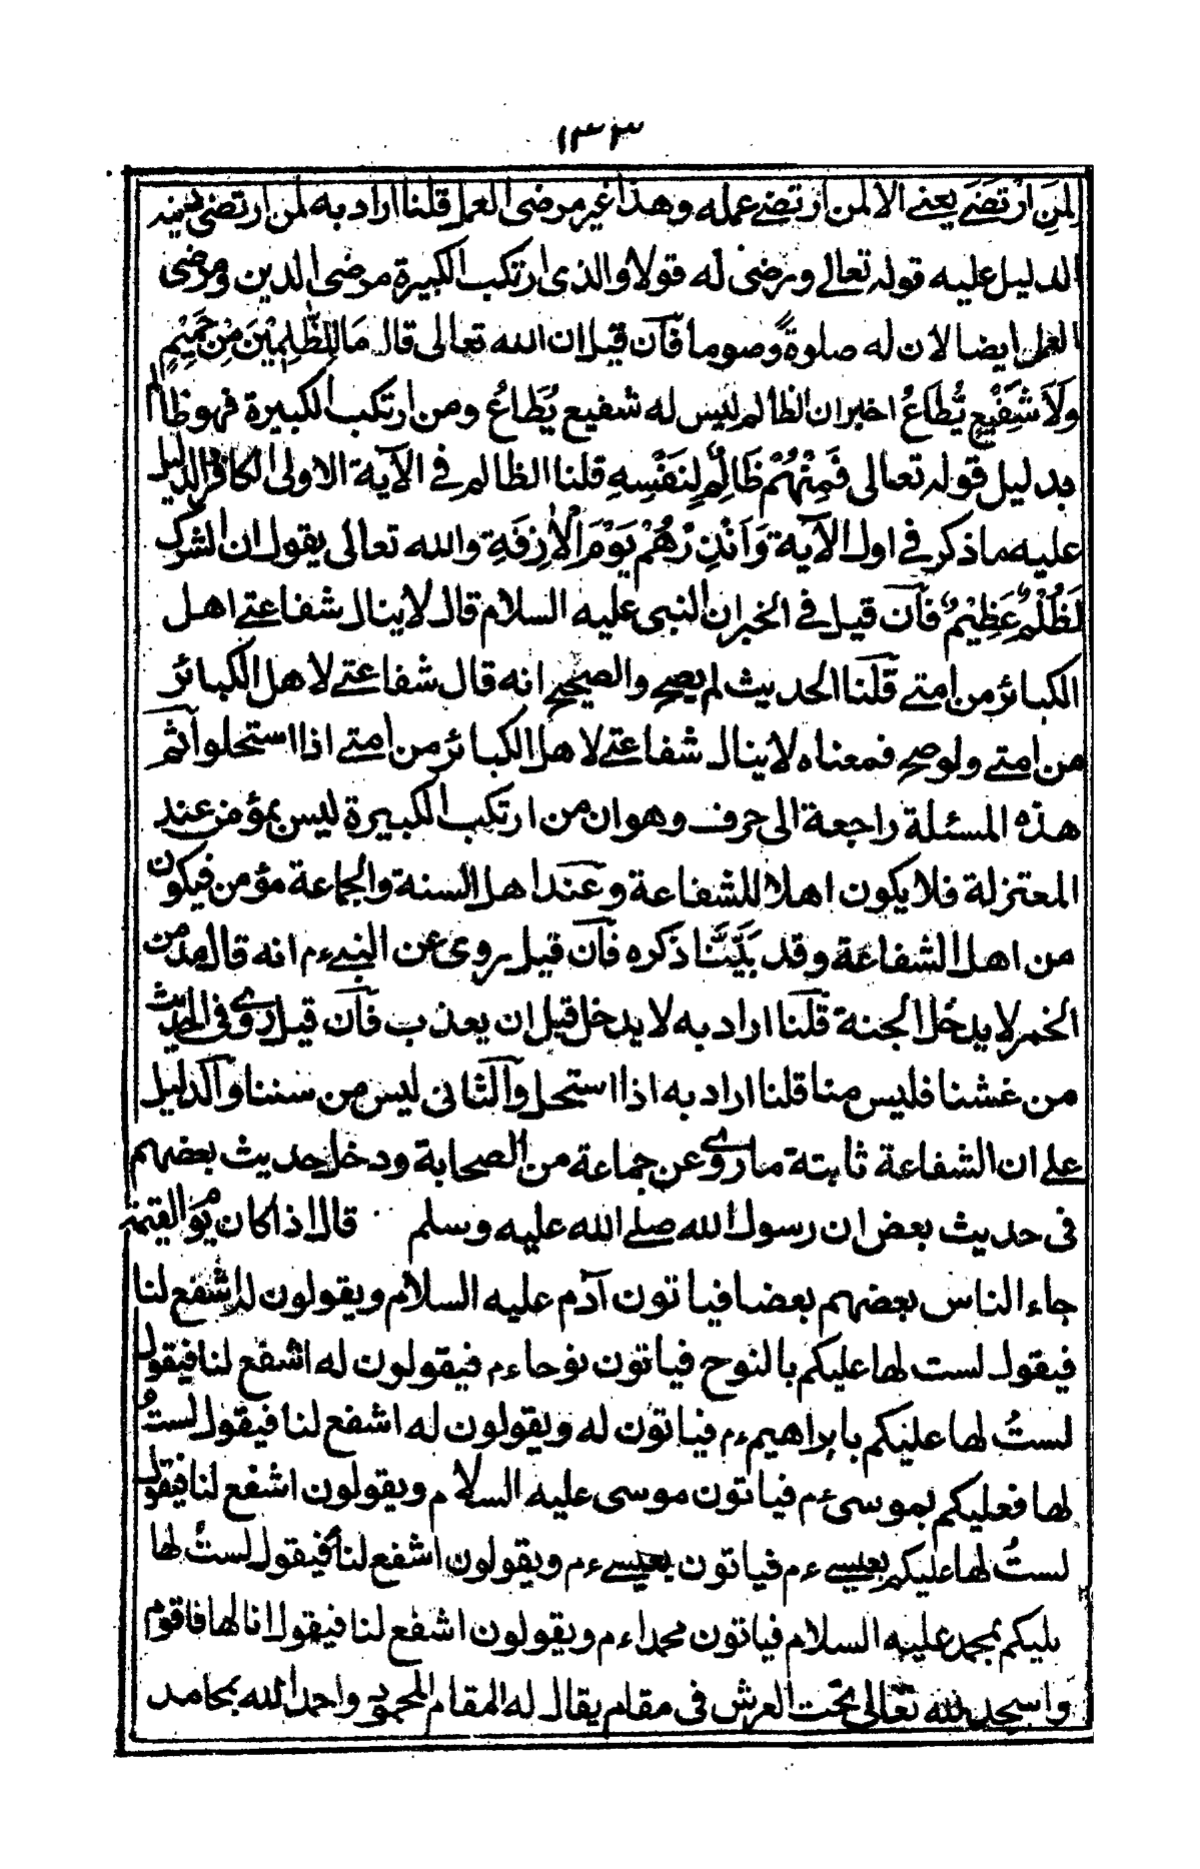 ١٣٣
لمن ارْتَضَى يعني الا لمن ارتضے عمله وهذا غير مرضى العمل قلنا اراد به لمن ارتضى دينه
الدليل عليه قوله تعالى ورضى له قولا والذى ارتكب الكبيرة مرضى الدين ومرضى
العمل ايضا لان له صلوة وصوما فان قيل ان الله تعالى قال مَا لِلظّٰلِمِيْنَ مِنْ حَمِيْمٍ
وَلَا شَفِيْعٍ يُّطَاعُ اخبر ان الظالم ليس له شفيع يُطَاعُ ومن ارتكب الكبيرة فهو ظالم
بدليل قوله تعالى فَمِنْهُمْ ظَالِمٌ لِّنَفْسِهِ قلنا الظالم فى الآية الاولى الكافر الدليل
عليه ما ذكر فى اول الآية وَاَنْذِرْهُمْ يَوْمَ الْاٰزِفَةِ والله تعالى يقول ان الشرك
لَظُلْمٌ عَظِيْمٌ فان قيل فى الخبر ان النبى عليه السلام قال لا ينال شفاعتے اهل
الكبائر من امتے قلنا الحديث لم يصح والصحيح انه قال شفاعتے لاهل الكبائر
من امتے ولو صح فمعناه لا ينال شفاعتے لاهل الكبائر من امتے اذا استحلوا ثم
هذه المسئلة راجعة الى حرف وهو ان من ارتكب الكبيرة ليس بمؤمن عند
المعتزلة فلا يكون اهلا للشفاعة وعند اهل السنة والجماعة مؤمن فيكون
من اهل الشفاعة وقد بَيَّنَّا ذكره فان قيل روى عن النبے ءم انه قال مدمن
الخمر لا يدخل الجنة قلنا اراد به لا يدخل قبل ان يعذب فان قيل روى فى الحديث
من غشنا فليس منا قلنا اراد به اذا استحل والثانى ليس من سننا والدليل
علے ان الشفاعة ثابتة ما روى عن جماعة من الصحابة ودخل حديث بعضهم
فى حديث بعض ان رسول الله صلے الله عليه وسلم قال اذا كان يوم القيمة
جاء الناس بعضهم بعضا فياتون آدم عليه السلام ويقولون له اشفع لنا
فيقول لست لها عليكم بالنوح فياتون نوحا ءم فيقولون له اشفع لنا فيقول
لستُ لها عليكم بابراهيم ءم فياتون له ويقولون له اشفع لنا فيقول لستُ
لها فعليكم بموسى ءم فياتون موسى عليه السلام ويقولون اشفع لنا فيقول
لستُ لها عليكم بعيسے ءم فياتون بعيسے ءم ويقولون اشفع لنا فيقول لستُ لها
عليكم بمحمد عليه السلام فياتون محمدا ءم ويقولون اشفع لنا فيقول انا لها فاقوم
واسجد لله تعالى تحت العرش فى مقام يقال له المقام المحمود واحمد الله بمحامد